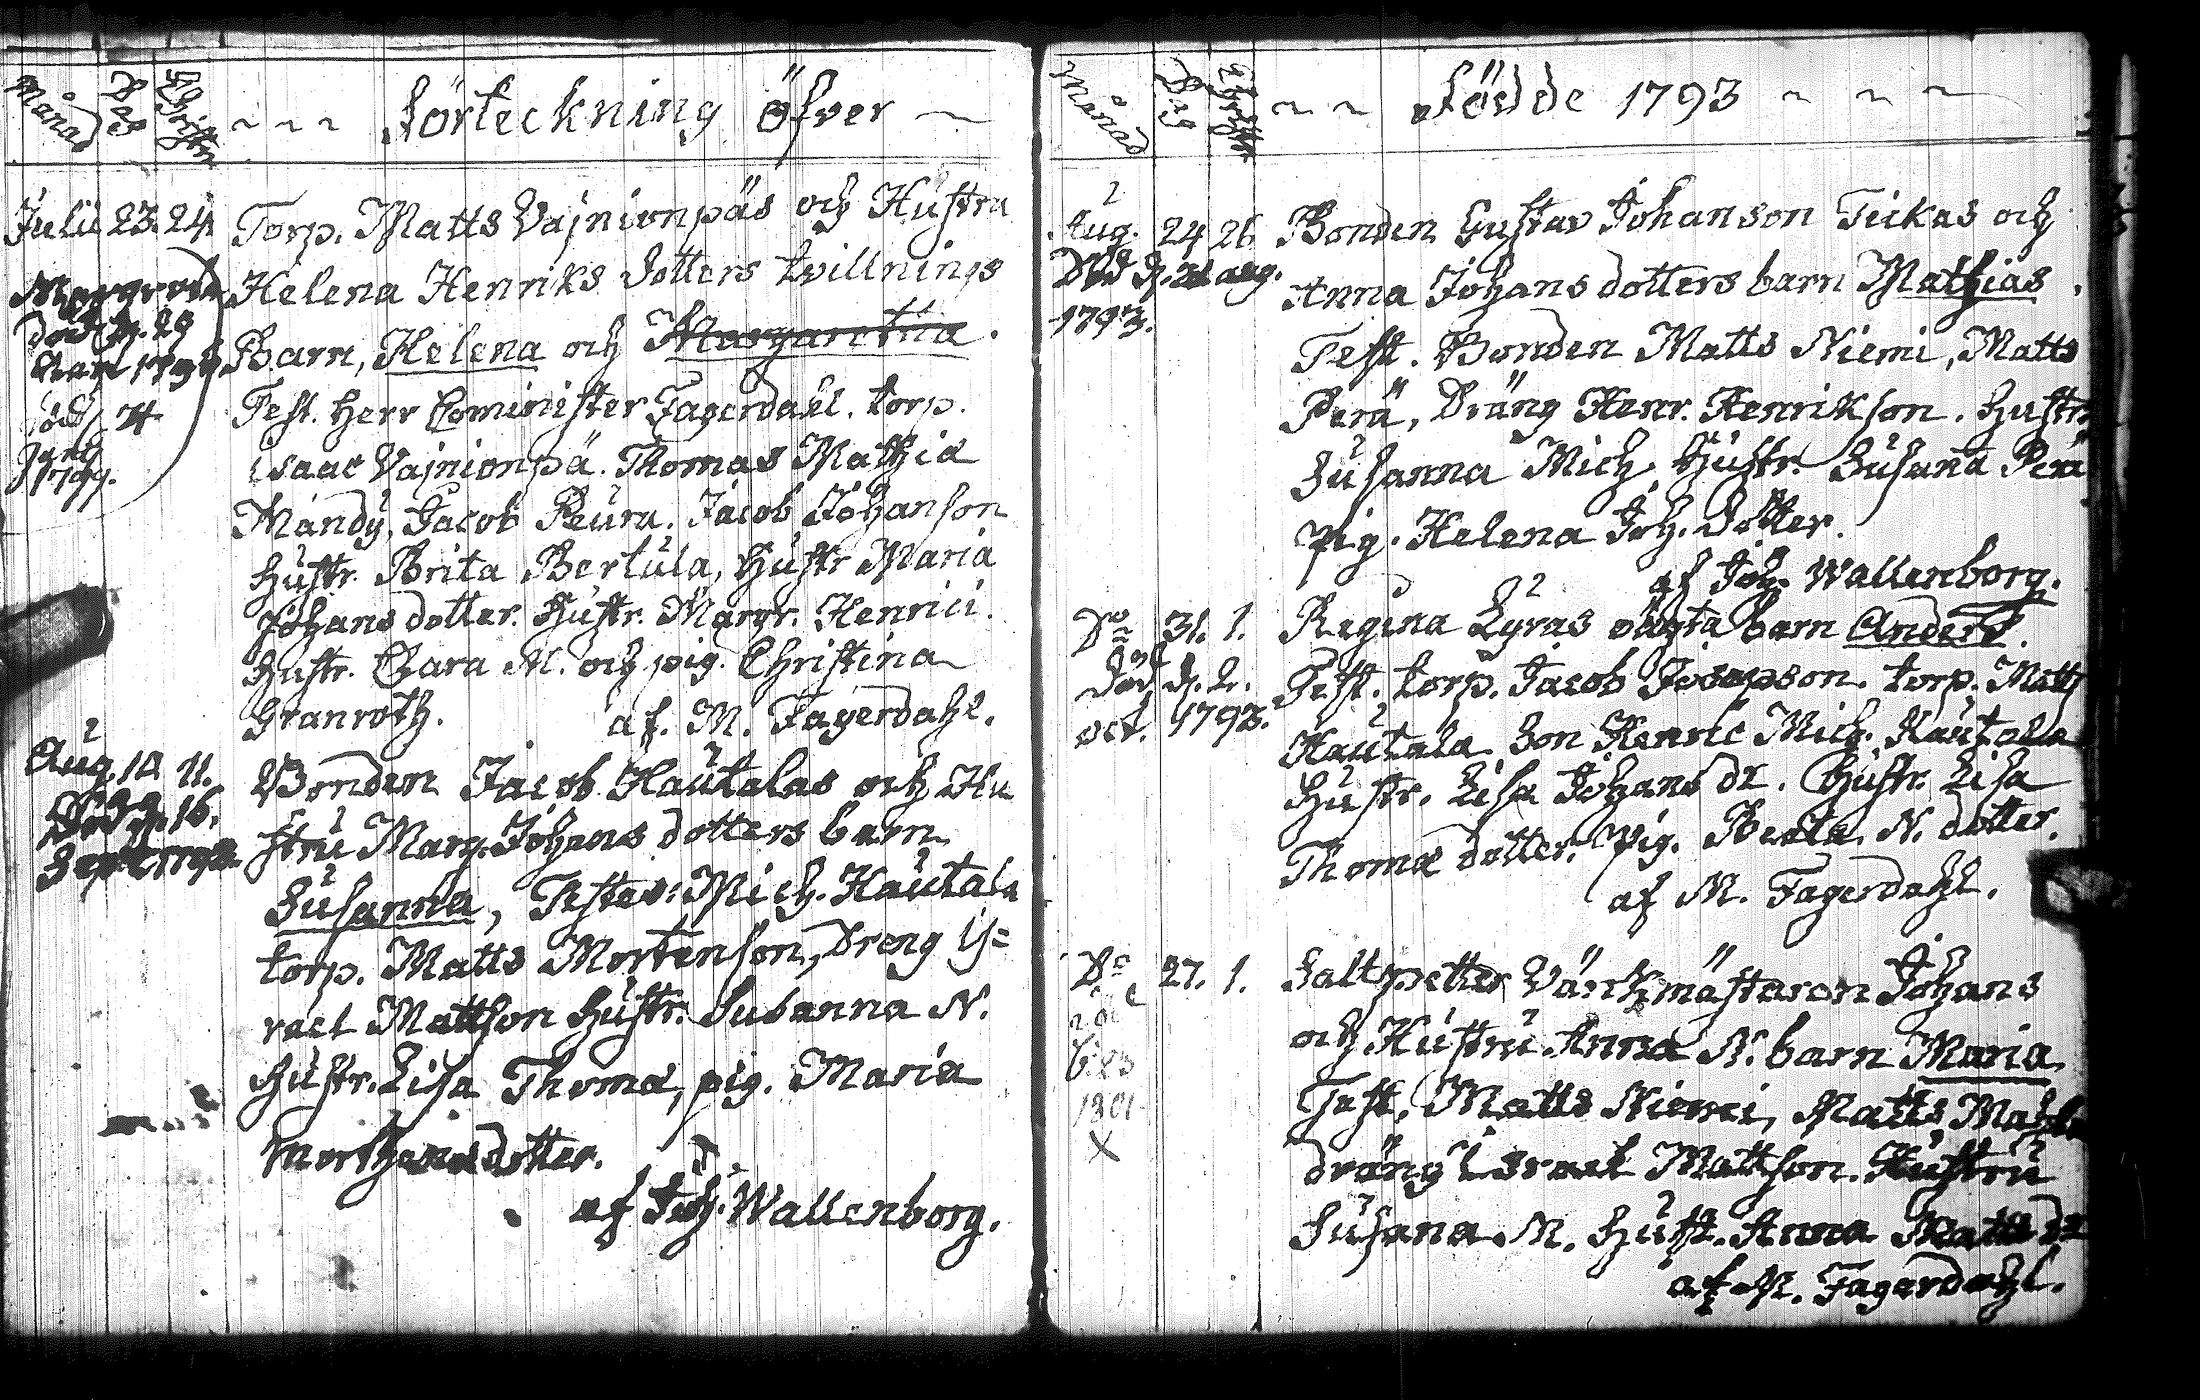 Månad Dag Christn
~ ~ ~ Förteckning öfver ~
Julii 23. 24.
Torp. Matts Vajnionpäs och Hustru
Helena Henriks dotters tvillnings
Barn, Helena och Margaretha.
död d. 29
1799.
Test. Herr Cominister Fagerdahl. torp.
isaac Vajnionpä. Thomas Mathia
Mändy, Jacob Peura. Jacob Johanson
Hustr. Brita Bertula, Hustr Maria
Johans dotter. Hustr. Margr. Henrici.
Hustr. Clara M. och pig. Christina
Granroth. af. M. Fagerdahl.
Aug. 10 11.
Död d. 16.
Septemb
Bonden Jacob Hautalas och Hu
stru Marg. Johans dotters barn
Susanna, Testes: Mich. Hautala
torp. Matts Mortenson, Dreng is=
rael Mattson Hustr. Susanna N.
Hustr. Lisa Thomæ, pig. Maria
dotter.
af Joh. Wallenborg.
Månad Dag Christn
~ ~ Födde 1793 ~ ~ ~
Aug. 24 26
Död d. 31 aug.
1793.
Bonden Gustav Johanson Tickas och
Anna Johans dotters barn Mathias.
Test. Bonden Matts Niemi, Matts
Perä, Dräng Henr. Henrikson. Hustr.
Susanna Mich. Hustr. Susana Perä
pig. Helena Joh. dotter.
af Joh. Wallenborg.
Do 31. 1.
Död d. 2.
oct. 1793.
Regina Lyras oägta barn Anders.
Test. torp. Jacob Josepson. torp. Matts
Hautala. Son Henric Mich. Hautala
Hustr. Lisa Johans dr. Hustr. Lisa
Thomæ dotter. Pig. Beata N. dotter.
af M. Fagerdahl.
Do 27. 1.
1801
X
Saltpetter Värckmästaren Johans
och Hustru Anna N. barn Maria
Test. Matts Niemi, Matts
dräng israel Mattson. Hustru
Susana M. Hust. Anna Matts dr
af M. Fagerdahl.